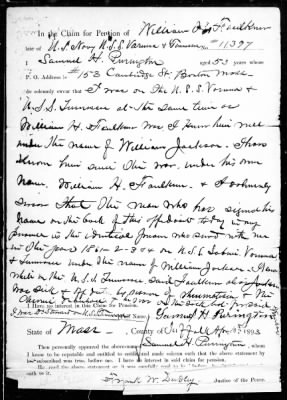 In the Claim for Pension of William H Faulkner
late of U.S. Navy U.S.S. Varuna & Tennessee #11397
I Samuel H. Purington aged 53 years whose
P. O. Address is #153 Cambridge St. Boston Mass
do solemnly swear that I was on the U.S.S. Varuna &
U.S.S. Tennessee at the same time as
William H. Faulkner was I knew him well
under the name of William Jackson. I have
known him since the war, under his own
name. William H. Faulkner. & I solemnly
swear that the man who has signed his
name on the back of this affidavit today in my
presence is the identical person who served with me
in the years 1861-2-3 & 4 on U.S.S
& Tennessee under the name of William Jackson.
while on the U.S.S. Tennessee said Faulkner or Jackson
was sick
I have no interest in the Claim for Pension.
Samuel H. Purington
State of Mass County of Suffolk 1893
Then personally appeared the above-named Samuel H. Purington, whom
I know to be reputable and entitled to credit and made solemn oath that the above statement by
him subscribed was true, before me. I have no interest in said claim.
Frank W. Justice of the Peace.